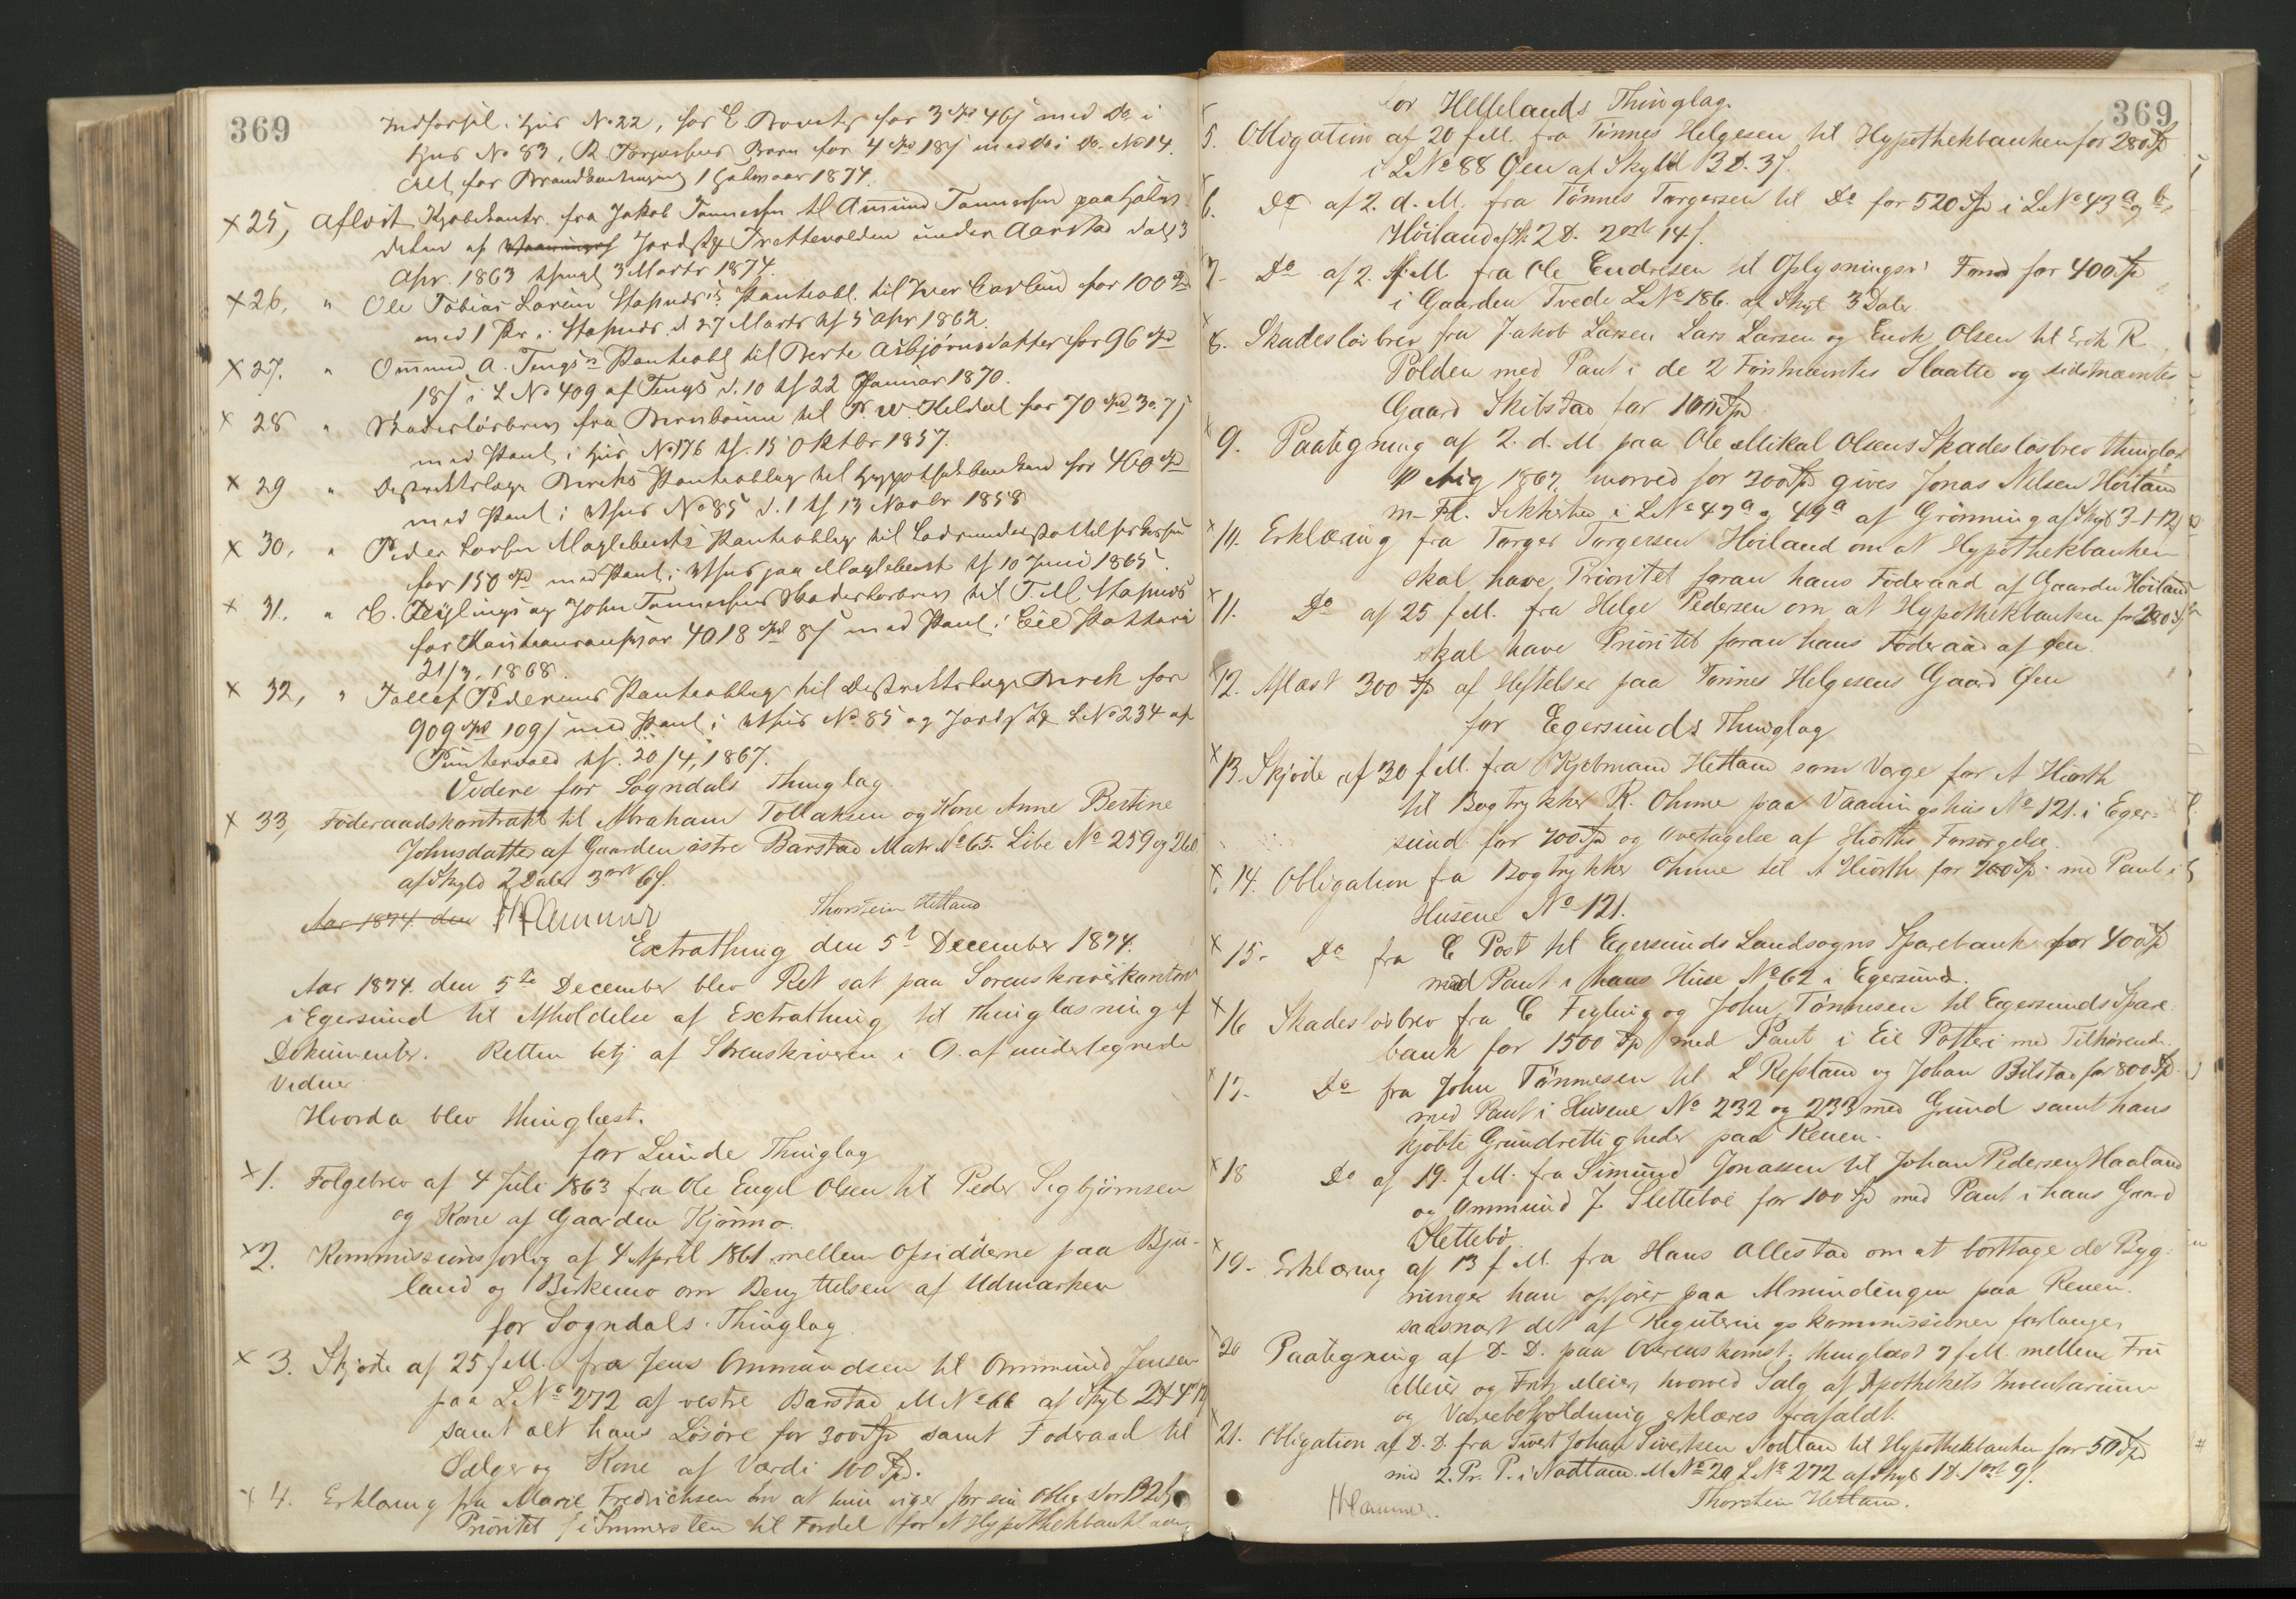 369
Indførsel i Huus No 22, for E for 3 Spd 46 s med Do i
Huus No 83, R Børn for 4 Spd 18 s med do i do No 14.
alt for 1 Halvaar 1874.
x 25, Aflæst Kjøbekontr. fra Jakob Tønnessen til Amund Tønnessen paa
delen af Jordstk under Aarstad dat 3
Apr. 1863 3 Marts 1874.
x 26, " Ole Tobias Stapnes's Panteobl. til for 100 Spd
med 1 Pr i Stapnes d 27 Marts tl 5 Apr 1862.
x 27. " Ommund A. Tengs's Panteobl til Berte Asbjørnsdatter for 96 Spd
18 s i L No 409 af Tengs d. 10 tl 22 Januar 1870.
x 28 " Skadesløsbrev fra til P. W Feldal for 70 Spd 3 o. 7 s
med Pant i Huus No 176 tl. 15 Oktbr 1857.
x 29 " Distriktslæge Birchs Panteoblig til Hypothekbanken for 460 Spd
med Pant i Huus No 85 d. 1 tl 13 Novbr 1858
x 30, " Peder Larsen Maglebersts Panteoblig til
for 150 Spd med Pant i Huus paa Magleberst tl 10 Juni 1865.
x 31, " C. Feylings og John Tønnessens Skadesløsbrev til T. M Stapnes
for Kautionsansvar 4018 Spd 8 s med Pant i Eie Potteri
21/3, 1868.
x 32, " Tollef Pedersens Panteoblig til Distriktslæge Birch for
909 Spd 109 s med Pant i Huus No 85 og Jordstk L No 234 af
Puntervold tl. 20/4, 1867.
Videre for Sogndals Thinglag.
x 33, Føderaadskontrakt til Abraham Tollaksen og Kone Anne Bertine
Johnsdatter af Gaarden østre Barstad Matr No 65. Løbe No 259 og 260
af Skyld 2 Daler 3 ort 6 s.
Aar 1874 den HHammer Thorstein Hetland
Extrathing den 5te December 1874.
Aar 1874. den 5te December blev Ret sat paa Sorenskriverkontoret
i Egersund til Afholdelse af Extrathing til thinglæsning af
Dokumenter. Retten betj af Sorenskriveren i O. af undertegnede
Vidner
Hvorda blev thinglæst.
for Lunde Thinglag
x 1. Følgebrev af 4 Juli 1863 fra Ole Engel Olsen til Peder Sigbjørnsen
og Kone af Gaarden Kjørmo.
x 2. Kommissionsforlig af 4 April 1861 mellem Opsidderne paa Bju-
land og Birkemo om Benyttelsen af Udmarken
for Sogndals Thinglag
x 3. Skjøde af 25 f M. fra Jens Ommundsen til Ommund Jensen
paa L No 272 af vestre Barstad M No 66 af Skyl
samt alt hans Løsøre for 300 Spd samt Føderaad til
Sælger og Kone af Værdi 100 Spd.
x 4. Erklæring fra Marie Fredrichsen om at hun viger for sin Oblig
Prioritet i til Fordel for et Hypothekbanklaan
369
for Hellelands Thinglag.
x 5. Obligation af 20 f M. fra Tønnes Helgesen til Hypothekbanken for 280 Spd
i L No 88 Øen af Skyld 3 D. 3 s.
x 6. Do af 2. d. M. fra Tønnes Torgersen til Do for 520 Spd i L No 43 a og b,
Høiland af Sk 2 D. 2 ort 14 s.
x 7. Do af 2. f. M. fra Ole Endresen til Oplysningsv: Fond for 400 Spd
i Gaarden Tvede L No 186. af Skyl 3 Daler
x 8. Skadesløsbrev fra Jakob Larsen Lars Larsen og Enok Olsen til Erik R
Polden med Pant i de 2 Førstnævntes Slaatte og sidstnævntes
Gaard Skibstad for 100 Spd
x 9. Paategning af 2. d. M. paa Ole Mikal Olsens Skadesløsbrev thinglæst
10 Aug 1867 hvorved for 300 Spd gives Jonas Nilsen Høiland
m. Fl. Sikkerhed i L No 47 a og 49 a af Grønning af Skyl 3-1-12 s
x 10. Erklæring fra Torger Torgersen Høiland om at Hypothekbanken
skal have Prioritet foran hans Føderaad af Gaarden Høiland
x 11. Do af 25 f M. fra Helge Pedersen om at Hypothekbanken for 280 Sp
skal have Prioritet foran hans Føderaad af Øen.
x 12. Aflæst 300 Spd af Heftelser paa Tønnes Helgesens Gaard Øen
for Egersunds Thinglag
x 13. Skjøde af 30 f M. fra Kjøbmand Hetland som Værge for A Hiorth
til Bogtrykker K. Ohme paa Vaaningshus No 121. i Eger-
sund for 700 Spd og Overtagelse af Hiorths Forsørgelse.
x 14. Obligation fra Bogtrykker Ohme til A Hiorth for 700 Spd. med Pant i
Husene No 121.
x 15. Do fra C Post til Egersunds Landsogns Sparebank for 400 Spd
med Pant i hans Huse No 62 i Egersund.
x 16 Skadesløsbrev fra C Feyling og John Tønnesen til Egersunds Spare
bank for 1500 Spd med Pant i Eie Potteri med Tilhørende.
x 17. Do fra John Tønnesen til L Repstad og Johan Bilstad for 800 Spd.
med Pant i Husene No 232 og 233 med Grund samt hans
kjøbte Grundrettigheder paa Renen.
x 18 Do af 19. f M. fra Simund Jonassen til Johan Pedersen Haaland
og Ommund J. Slettebøe for 100 Spd med Pant i hans Gaard
Slettebø.
x 19. Erklæring af 13 f M. fra Hans Ollestad om at borttage de Byg-
ninger han opfører paa Almindingen paa Renen.
saasnart det af Reguleringskommissionen forlanges
20 Paategning af D. D. paa Overenskomst, thinglæst 7 f M. mellem Fru
Meier og Fritz Meier, hvorved Salg af Apothekets Inventarium
og Varebeholdning erklæres frafaldt.
x 21. Obligation af D. D. fra Sivert Johan Sivertsen Nodland til Hypothekbanken for 50 Spd
med 2. Pr. P. i Nodland. M No 20 L No 272 af Skyl 1 D. 1 ort 9 s.
HHammer. Thorstein Hetland.